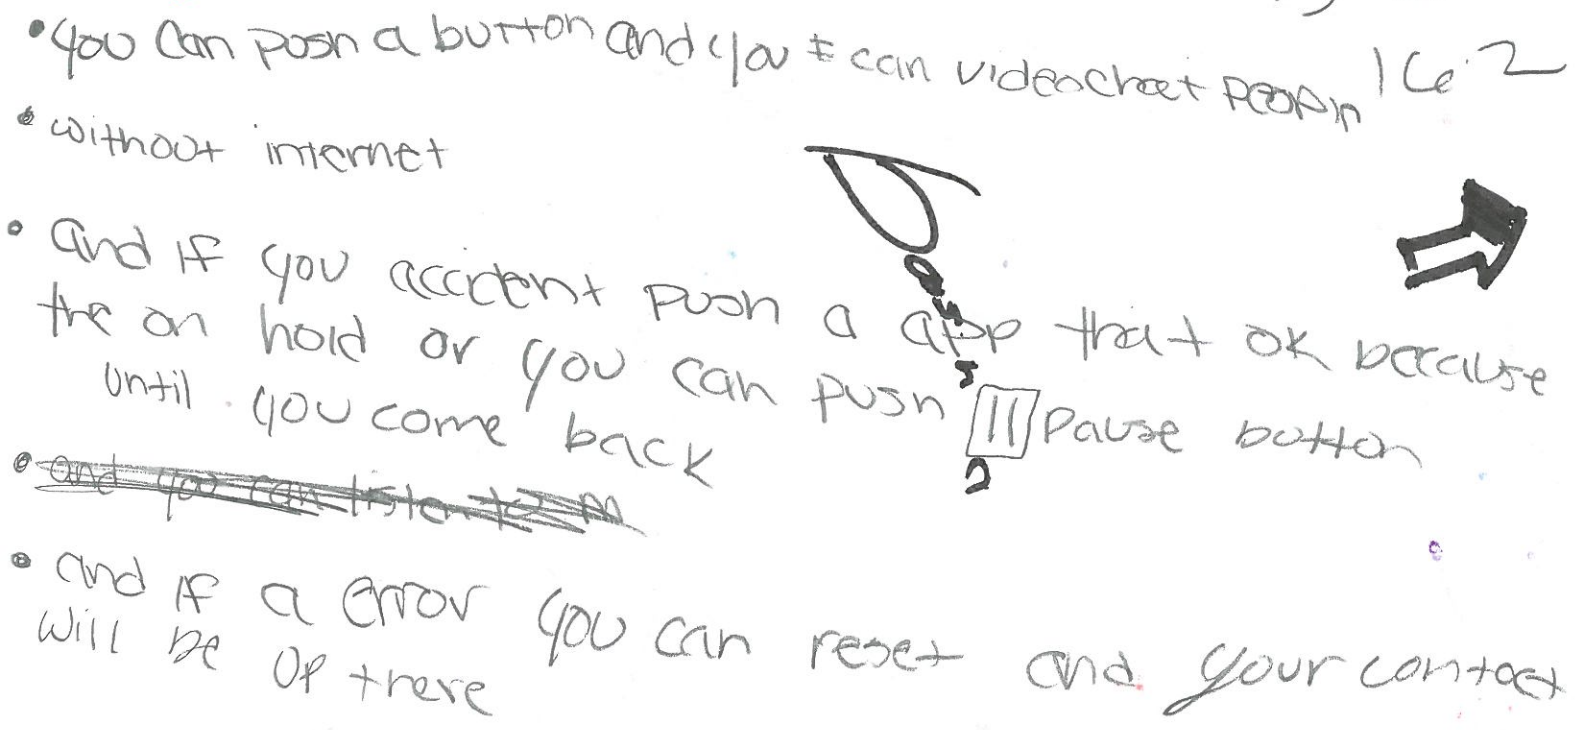 • you can push a button and you can videochat peopl 16.2
• without internet
• and if you accident push a app that ok because
the on hold or you can push || Pause button
until you come back
• and you can listen to m
• and if a error you can reset and your contact
will be up there